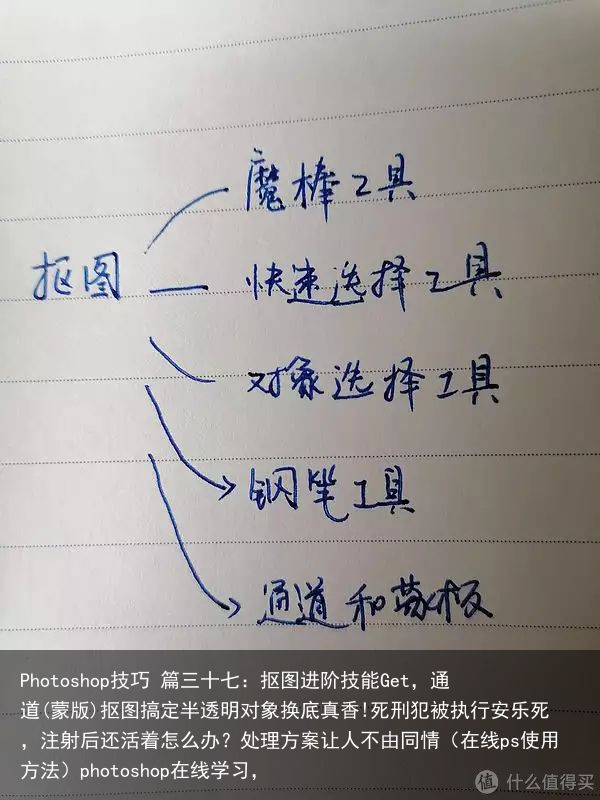 魔棒工具
抠图
快速选择工具
对象选择工具
钢笔工具
通道和蒙板
Photoshop技巧 篇三十七：抠图进阶技能Get，通
道(蒙版)抠图搞定半透明对象换底真香!死刑犯被执行安乐死
，注射后还活着怎么办？处理方案让人不由同情（在线ps使用
方法）photoshop在线学习，
值 什么值得买